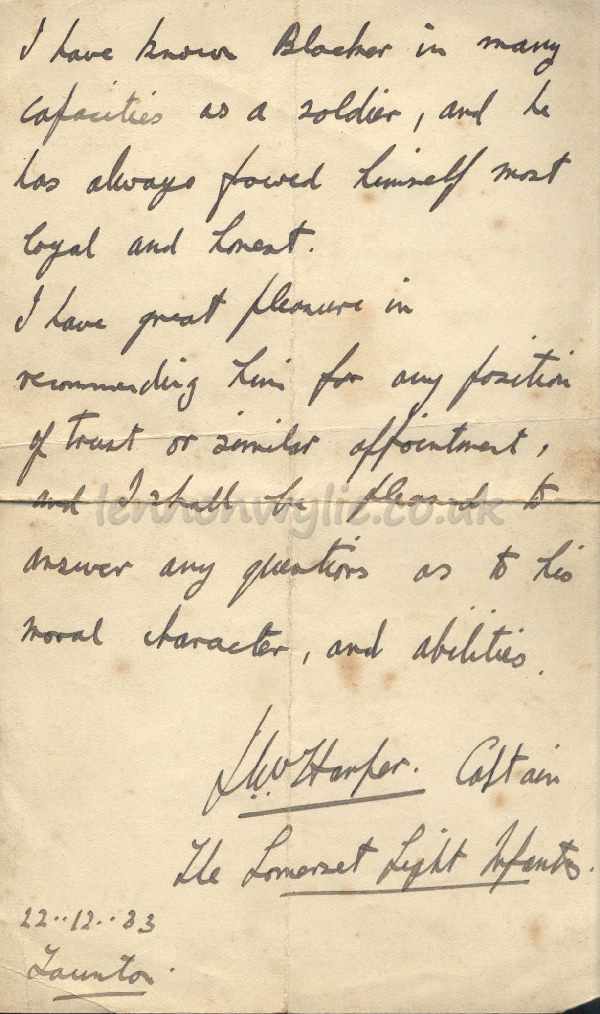 I have known Blacker in many
capacities as a soldier, and he
has always proved himself most
loyal and honest.
I have great pleasure in
recommending him for any position
of trust or similar appointment,
and I shall be pleased to
lennonwylie.co.uk
answer any questions as to his
moral character, and abilities.
Harper. Captain
The Somerset Light Infantry.
22..12..33
Taunton.